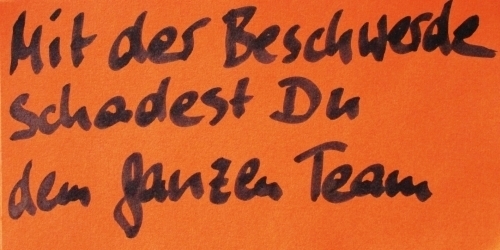 Mit der Beschwerde
schadest Du
dem ganzen Team